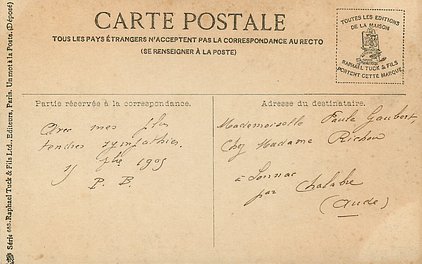 CARTE POSTALE
TOUS LES PAYS ÉTRANGERS N'ACCEPTENT PAS LA CORRESPONDANCE AU RECTO
(SE RENSEIGNER À LA POSTE)
TOUTES LES EDITIONS
DE LA MAISON
RAPHAEL TUCK & FILS
PORTENT CETTE MARQUE
Série 665. Raphael Tuck & Fils Ltd., Editeurs, Paris. Un mot à la Poste. (Déposé)
Partie réservée à la correspondance.
Avec mes plus
tendres sympathies
1905
P. B.
Adresse du destinataire.
Mademoiselle Paule Gaubert,
Chez Madame Richou
à
par Chalabre
(Aude)